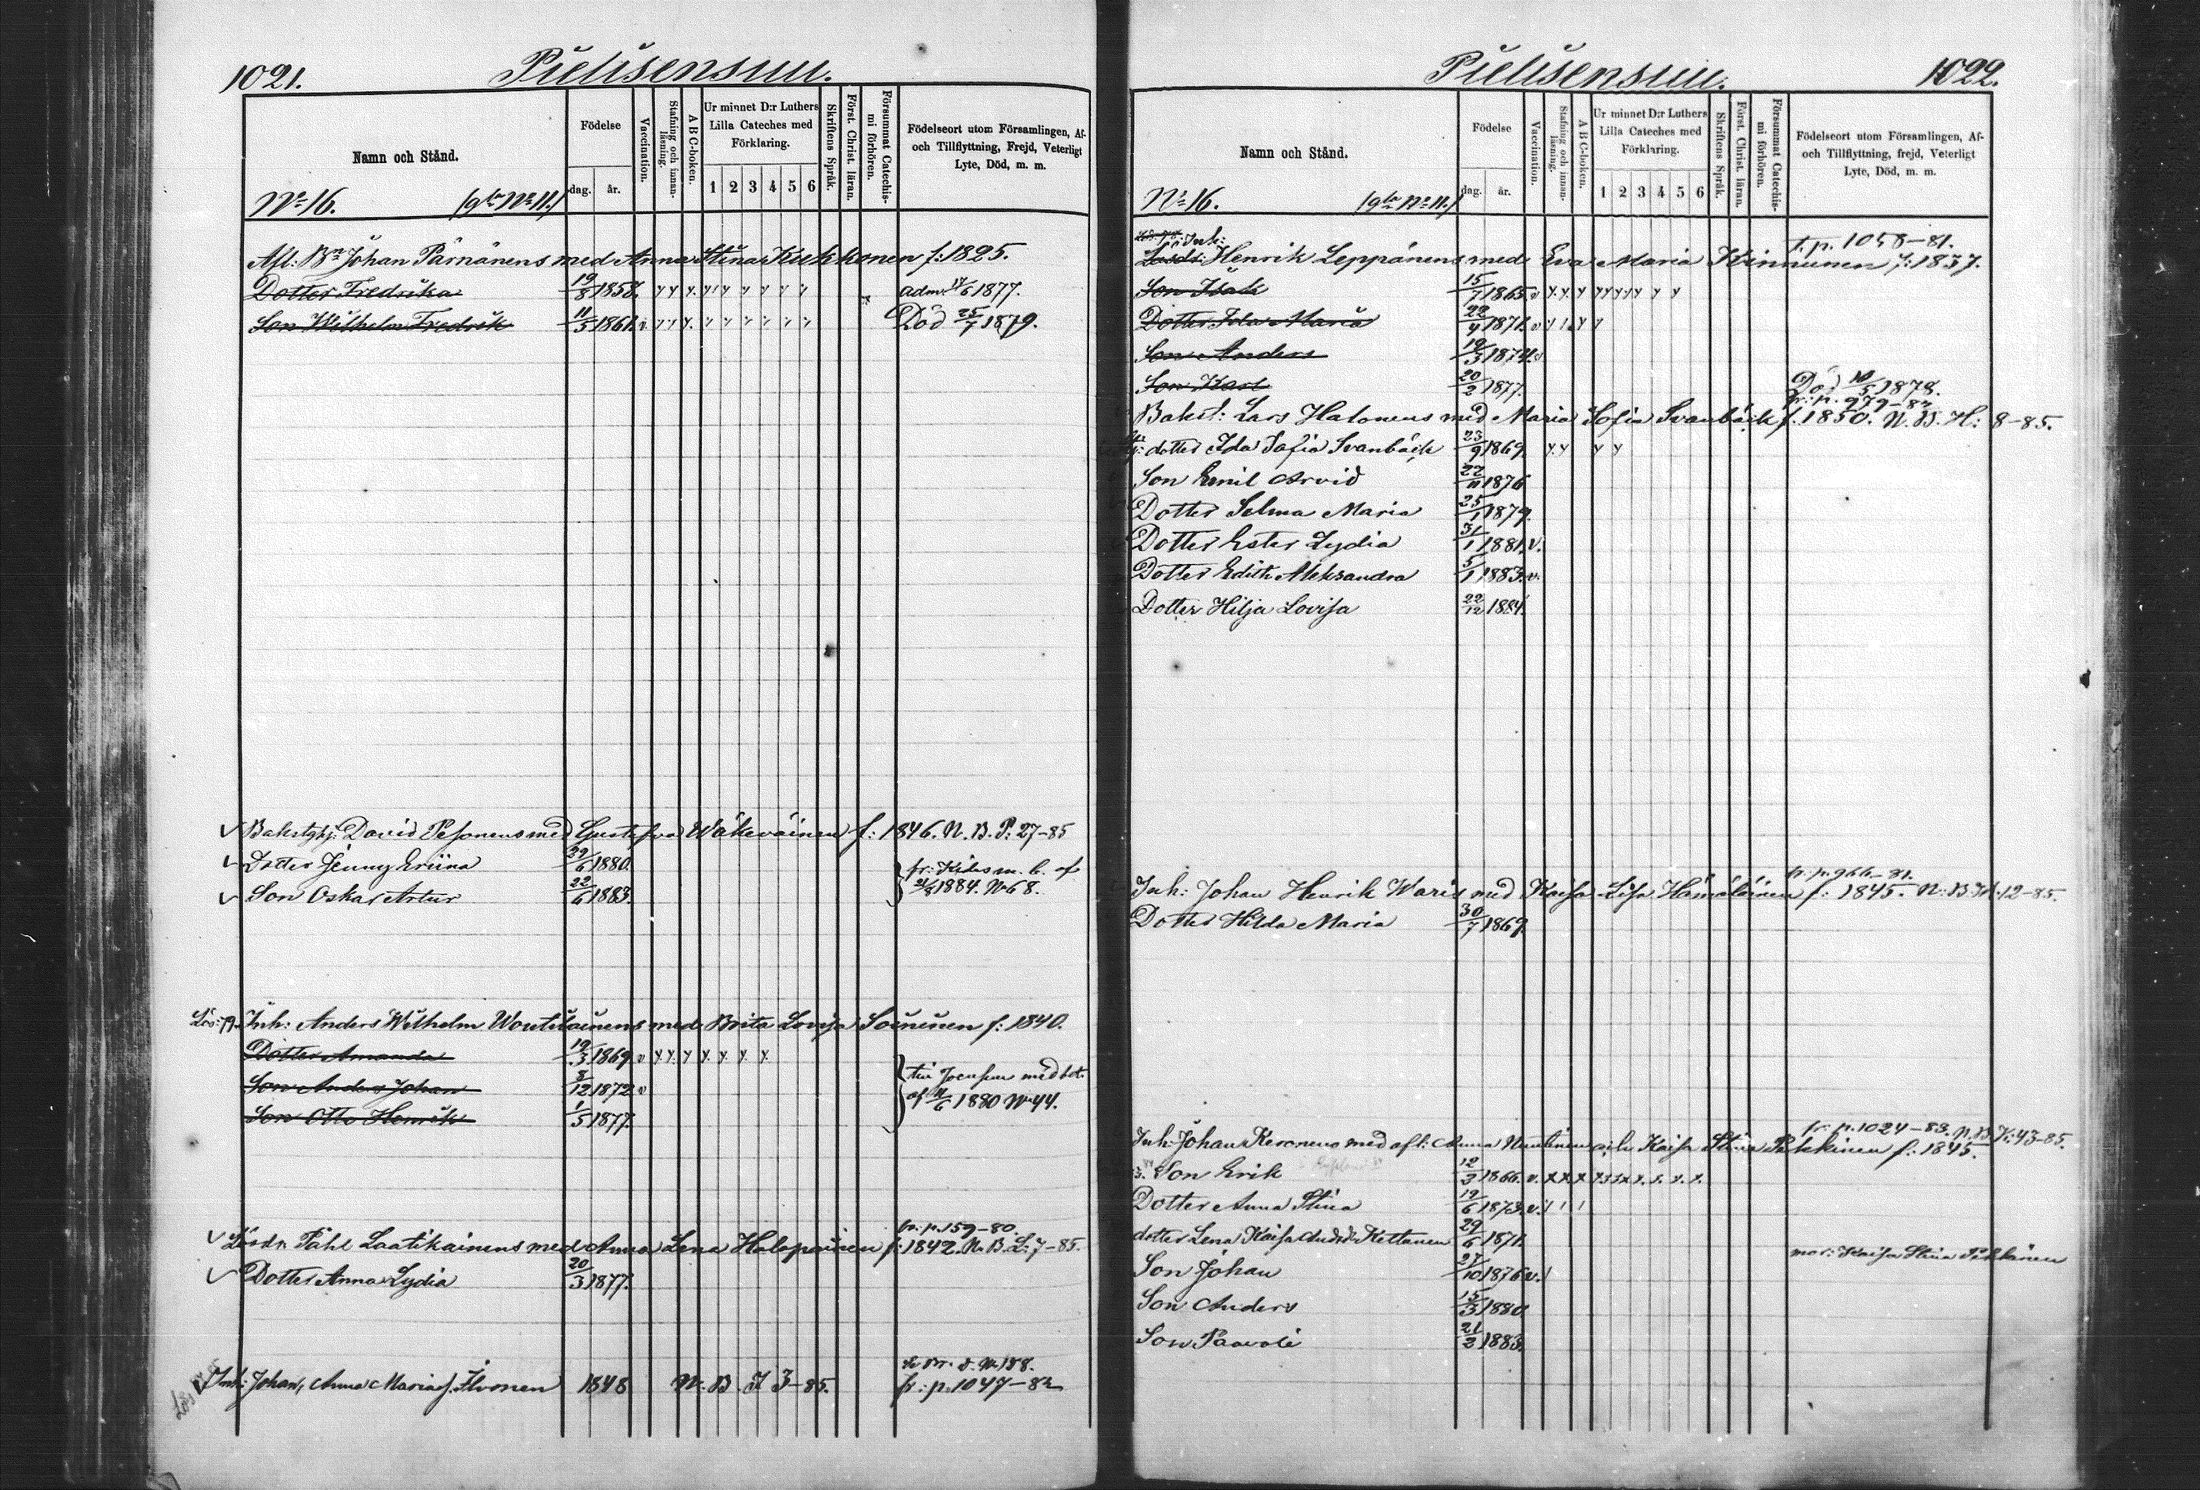 1021.
Pielisensuu.
Namn och Stånd.
Födelse
dag. år.
Vaccination.
Stafning och innan-läsning.
A B C-boken.
Ur minnet D:r Luthers Lilla Cateches med Förklaring.
1 2 3 4 5 6
Skriftens Språk.
Först. Christ. läran.
Försummat Catechismi förhören.
Födelseort utom Församlingen, Af- och Tillflyttning, Frejd, Veterligt Lyte, Död, m. m.
No 16.
Johan Pärnänens med Anna Stina Kukkonen f: 1825.
Dotter Fredrika 19/8 1858. adm. 1877.
Son Wilhelm Fredrik 11/5 1861. Död 25/7 1879.
David Pesonens med Gustafva Wäkeväinen f: 1846. N. B. P: 27-85
Dotter Jenny Eriina 29/6 1880.
Son Oskar Artur 22/6 1883.
1884. No 68.
Inh: Anders Wilhelm Woutilainens med Brita Lovisa Soininen f: 1840.
Dotter Amanda 19/3 1869. v
Son Anders Johan 8/12 1872 v
Son Otto Henrik 1/5 1877.
1880 No 44.
fr. p. 159-80.
Påhl Laatikainens med Anna Lena Halopainen f: 1842. N. B. L: 7-85.
Dotter Anna Lydia 20/3 1877.
Inh: Johan, Anna Maria f. Ilvonen 1848 N. B. I 3-85.
fr: p. 1047-82
1022.
Pielisensuu.
Namn och Stånd.
Födelse
dag. år.
Vaccination.
Stafning och innan-läsning.
A B C-boken.
Ur minnet D:r Luthers Lilla Cateches med Förklaring.
1 2 3 4 5 6
Skriftens Språk.
Först. Christ. läran.
Försummat Catechismi förhören.
Födelseort utom Församlingen, Af- och Tillflyttning, frejd, Veterligt Lyte, Död, m. m.
No 16.
t. p. 1058-81.
Inh: Henrik Leppänens med Eva Maria Kinnunen f: 1837.
Son Isak 15/7 1865. v
Dotter Ida Maria 22/4 1871. v
Son Anders 19/3 1874. v
Son Karl 20/2 1877. Död 10/5 1878.
fr: p. 979-82
Lars Halonens med Maria Sofia Svanbäck f. 1850. N. B. H: 8-85.
dotter Ida Sofia Svanbäck 23/9 1869.
Son Emil Arvid 22/11 1876
Dotter Selma Maria 25/1 1879.
Dotter Ester Lydia 31/1 1881. v.
Dotter Edith Aleksandra 5/1 1883. v.
Dotter Hilja Lovisa 22/12 1884.
fr. p. 966-81.
Inh: Johan Henrik Waris med Kaisa Lisa Hämäläinen f: 1845. N. B. 12-85.
Dotter Hilda Maria 30/7 1869.
fr. p. 1024-83. N. B. K: 43-85.
Inh: Johan Keronens med afl: Anna och Kaisa Stina f: 1845.
Son Erik 12/3 1866. v.
Dotter Anna Stina 19/6 1873. v.
dotter Lena Kaisa Kettunen 29/6 1871.
Son Johan 27/10 1876 v.
Son Anders 15/3 1880.
Son Paavoli 21/2 1883.